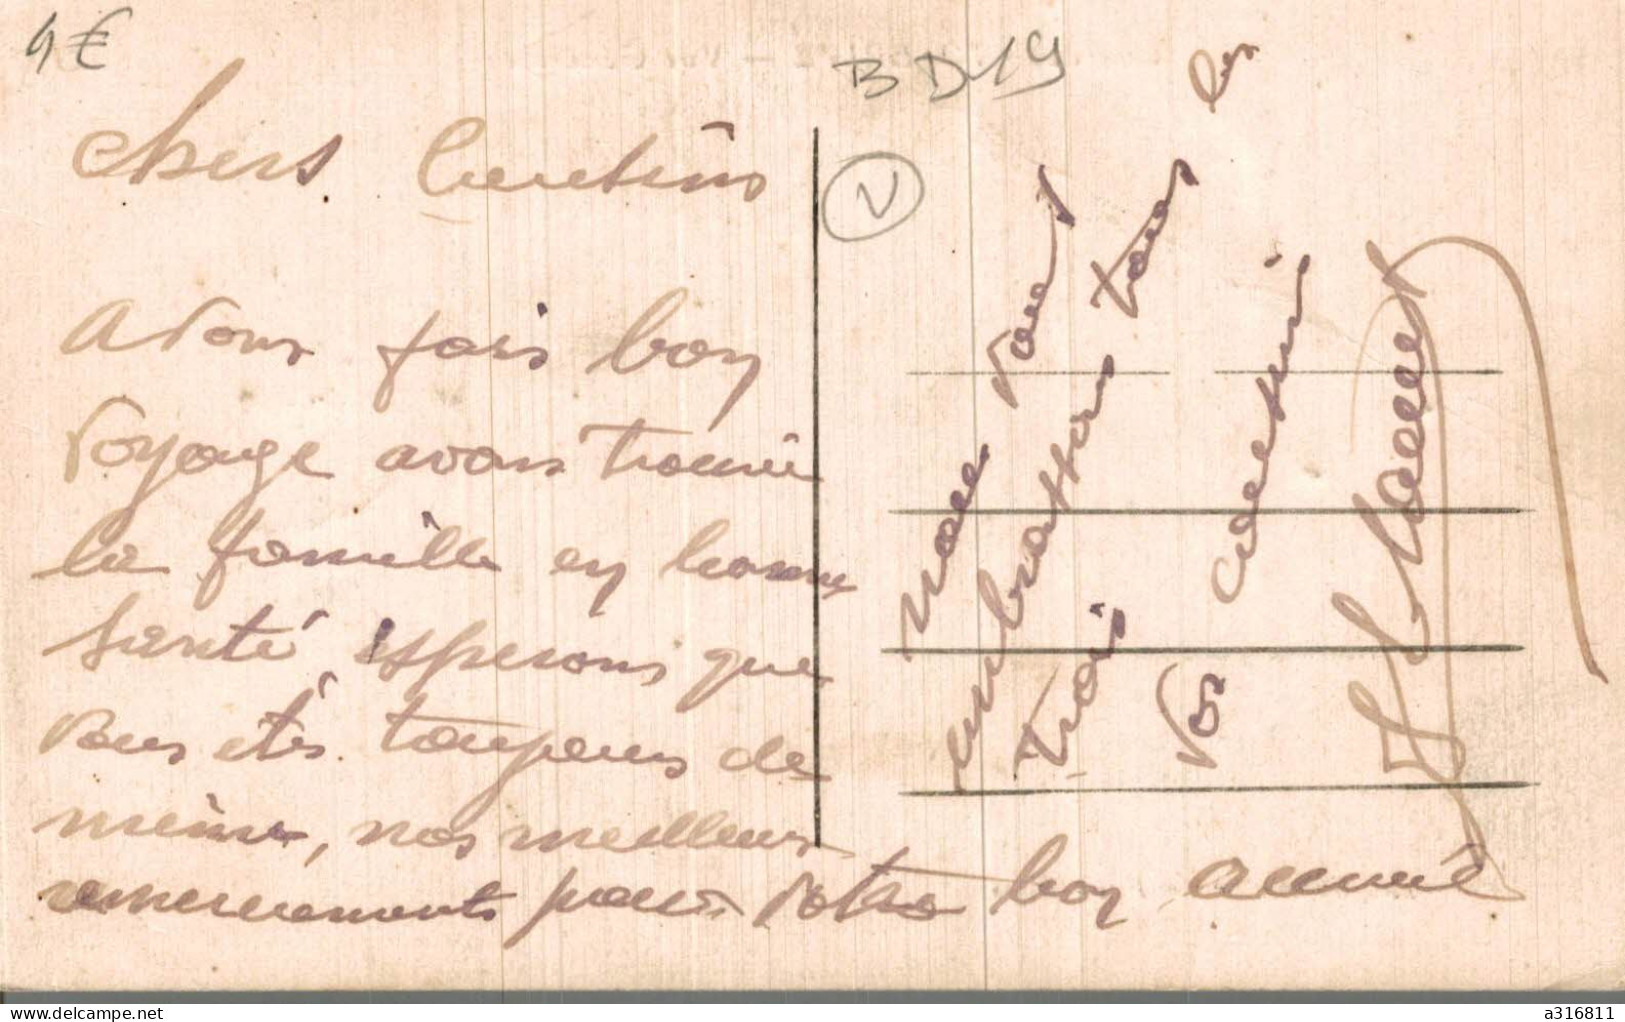 4€
BD19
V
chers Cousins
avons fais bon
voyage avons trouvé
la famille en bonne
santé, esperons que
vous êtes toujours de
même, nos meilleurs
remerciements pour votre bon accueil
nous vous
embrassons tous les
trois
vos cousins
delcampe.net
a316811